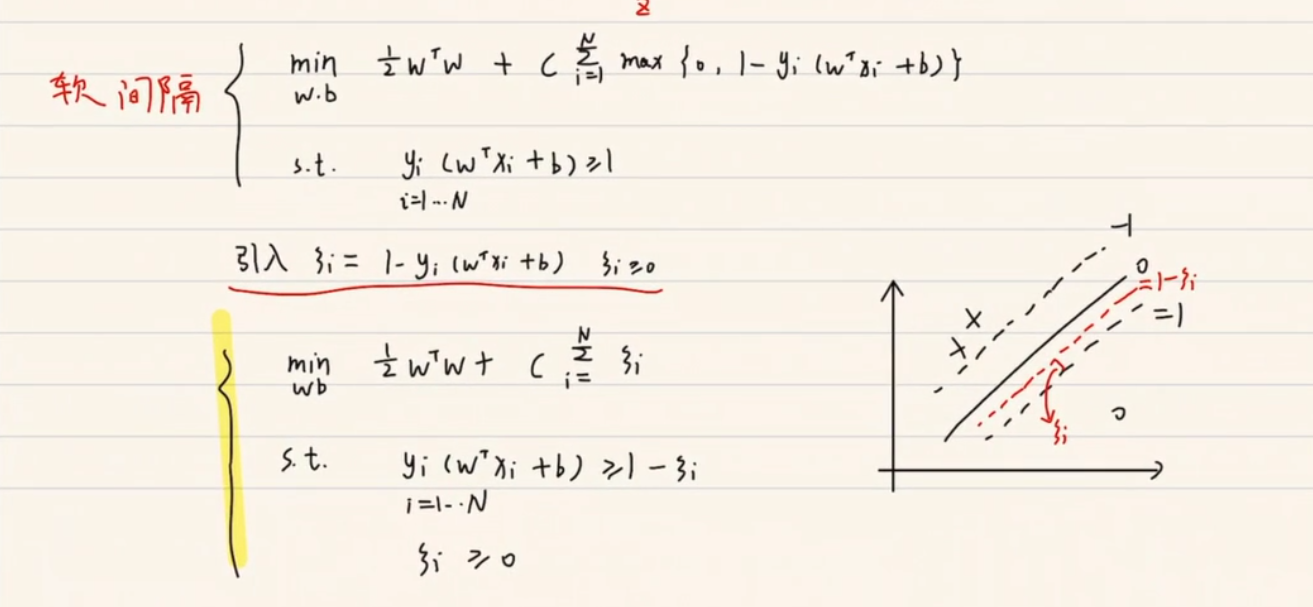 z
软间隔 { min ½ wᵀw + C Σ max {0, 1 - yᵢ (wᵀxᵢ + b)}
w.b i=1 N
s.t. yᵢ (wᵀxᵢ + b) ≥ 1
i=1…N
引入 ξᵢ = 1 - yᵢ (wᵀxᵢ + b) ξᵢ ≥ 0
min ½ wᵀw + C Σ ξᵢ
wb i= N
s.t. yᵢ (wᵀxᵢ + b) ≥ 1 - ξᵢ
i=1…N
ξᵢ ≥ 0
-1
0
=1-ξᵢ
=1
x
x
ξᵢ
0